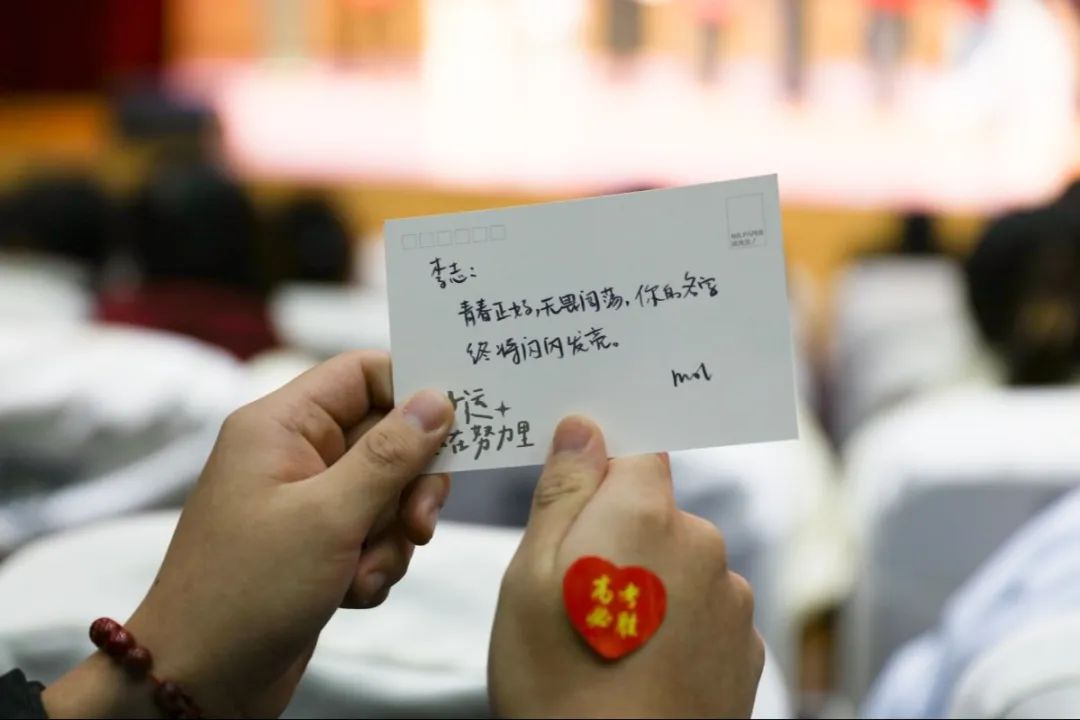 李志：
青春正好，无畏闯荡，你的名字
终将闪闪发亮。
mol
运
在努力里
高考
必胜